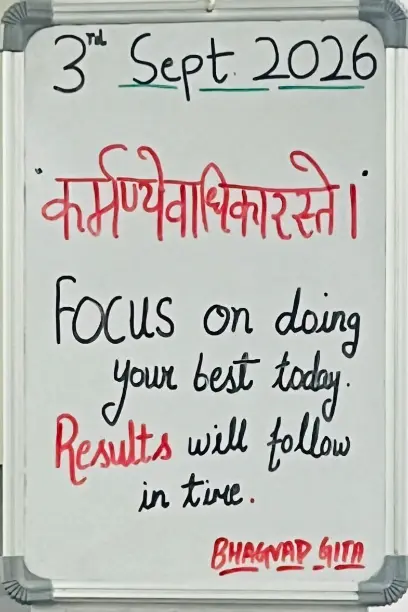 3rd Sept. 2026
"कर्मण्येवाधिकारस्ते।"
Focus on doing
your best today.
Results will follow
in time.
BHAGVAD GITA